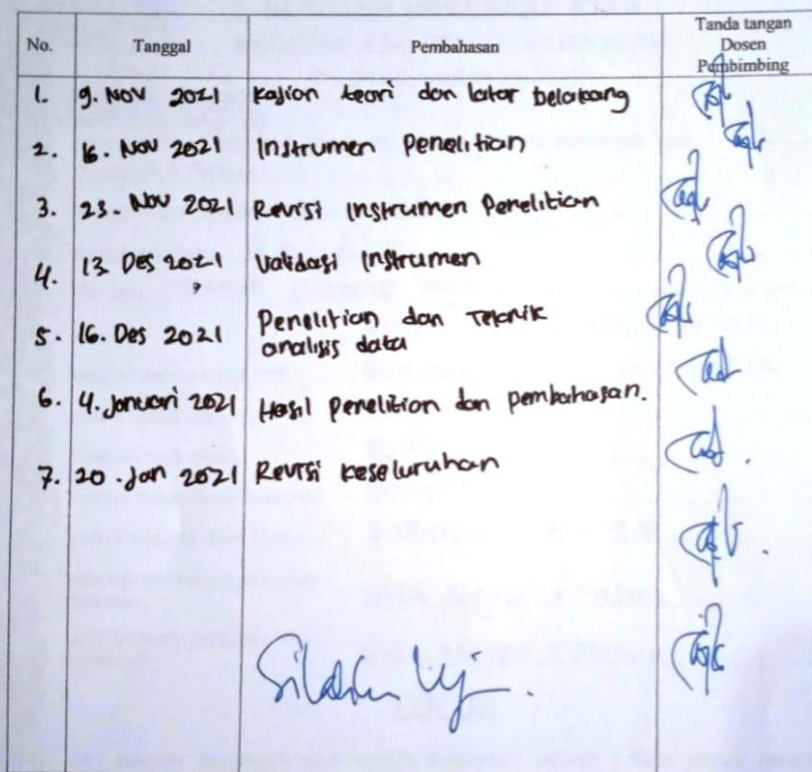 No. Tanggal Pembahasan Tanda tangan
Dosen
Pembimbing
1. 9. Nov 2021 Kajian teori dan latar belakang
2. 16. Nov 2021 Instrumen Penelitian
3. 23. Nov 2021 Revisi Instrumen Penelitian
4. 13 Des 2021 Validasi Instrumen
5. 16. Des 2021 Penelitian dan Teknik
analisis data
6. 4. Januari 2021 Hasil Penelitian dan pembahasan.
7. 20. Jan 2021 Revisi Keseluruhan